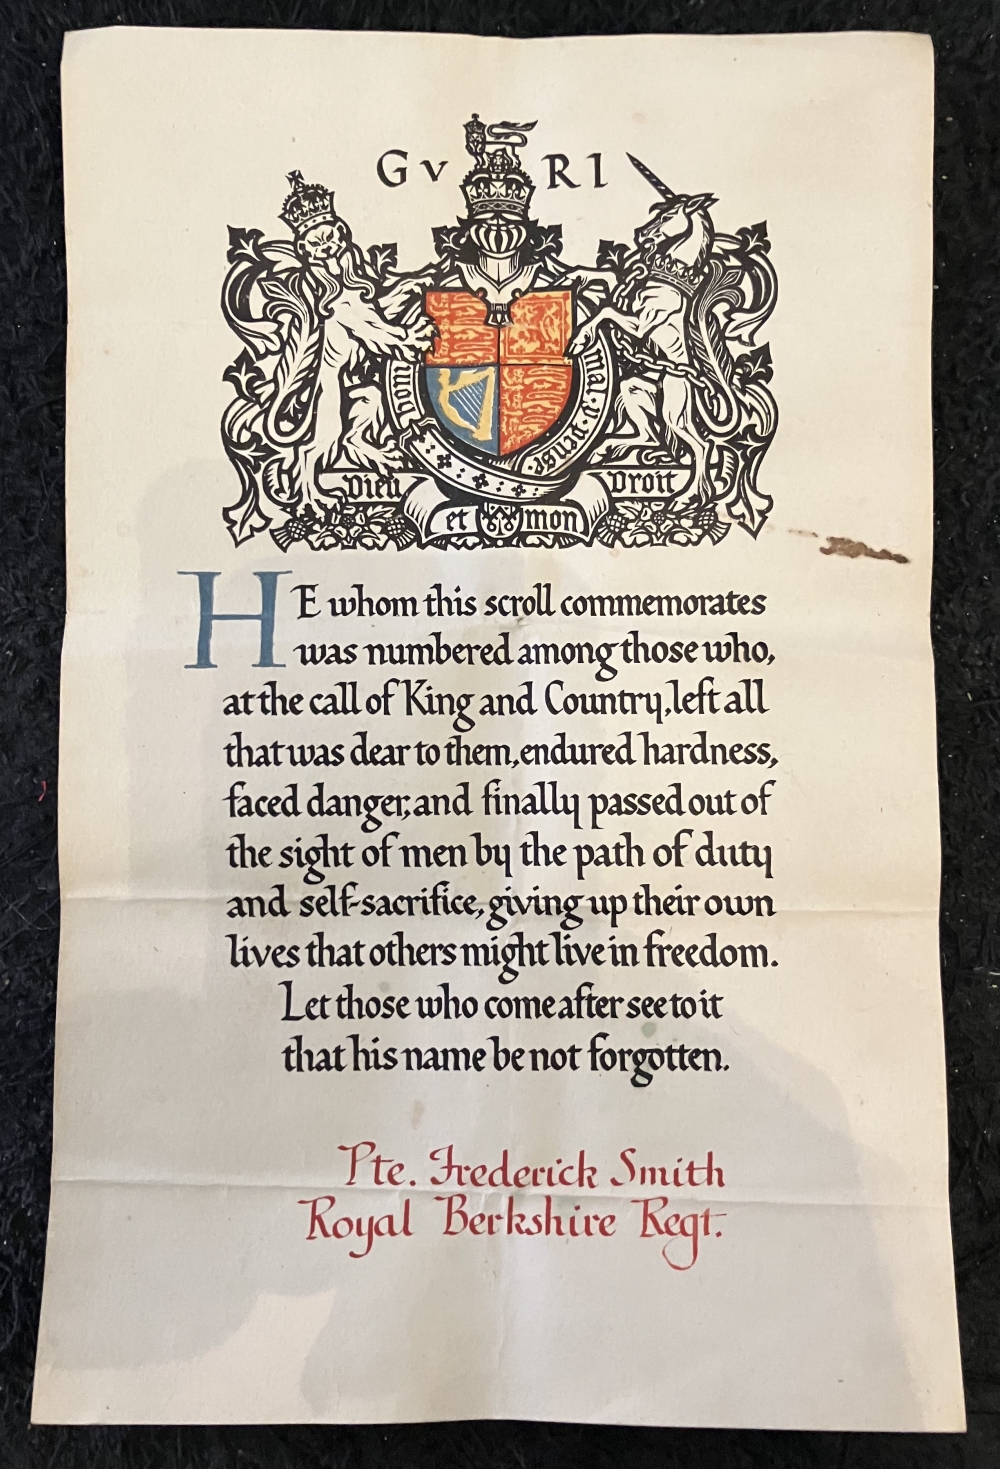 GV RI
honi
mal·y·pense·
Dieu
Droit
et mon
HE whom this scroll commemorates
was numbered among those who,
at the call of King and Country, left all
that was dear to them, endured hardness,
faced danger, and finally passed out of
the sight of men by the path of duty
and self-sacrifice, giving up their own
lives that others might live in freedom.
Let those who come after see to it
that his name be not forgotten.
Pte. Frederick Smith
Royal Berkshire Regt.